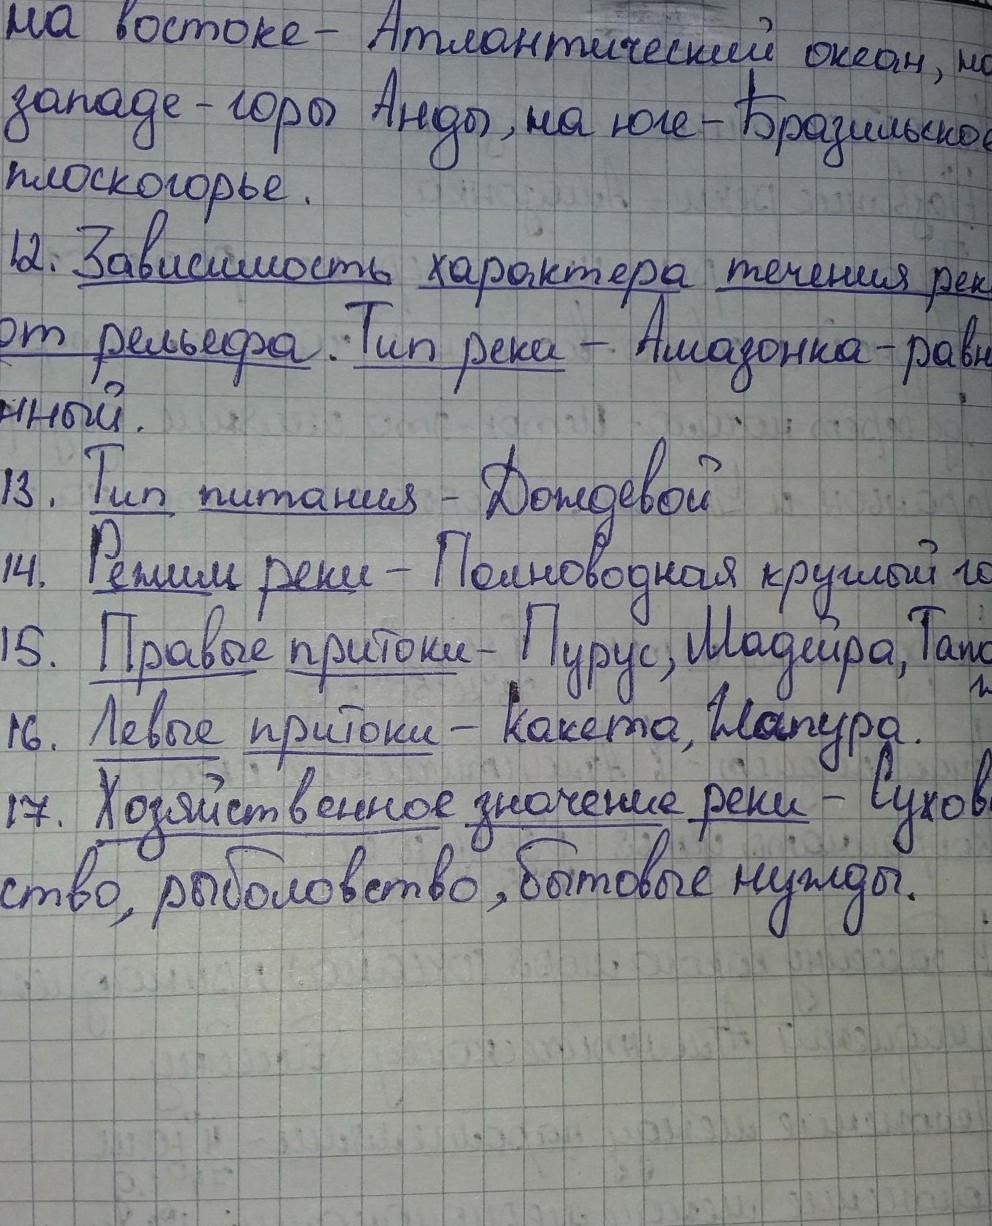 на востоке - Атлантический океан, на
западе - горы Анды, на юге - Бразильское
плоскогорье.
12. Зависимость характера течения рек
от рельефа. Тип река - Амазонка - равн
нный.
13. Тип питания - Дождевой
14. Режим реки - Полноводная круглый го
15. Правые притоки - Пурус, Мадейра, Тапа
16. Левые притоки - Какета, Жапура.
17. Хозяйственное значение реки - Сухов
ство, рыболовство, бытовые нужды.